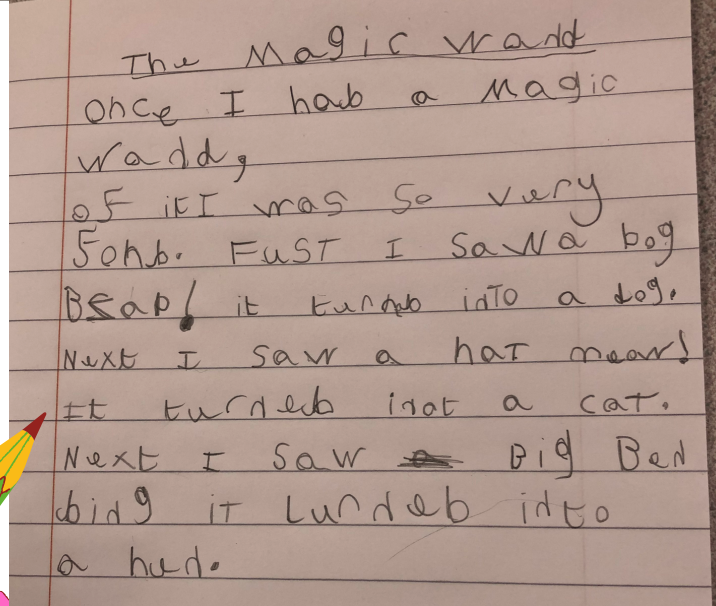 The Magic Wand
Once I hab a Magic
Wadd,
of it I was so very
Fonb. FUST I Sawa bog
BEaP! it turneb into a dog.
Next I saw a haT meaw!
It turneb inot a caT.
Next I saw Big Ben
bing iT turneb into
a hen.